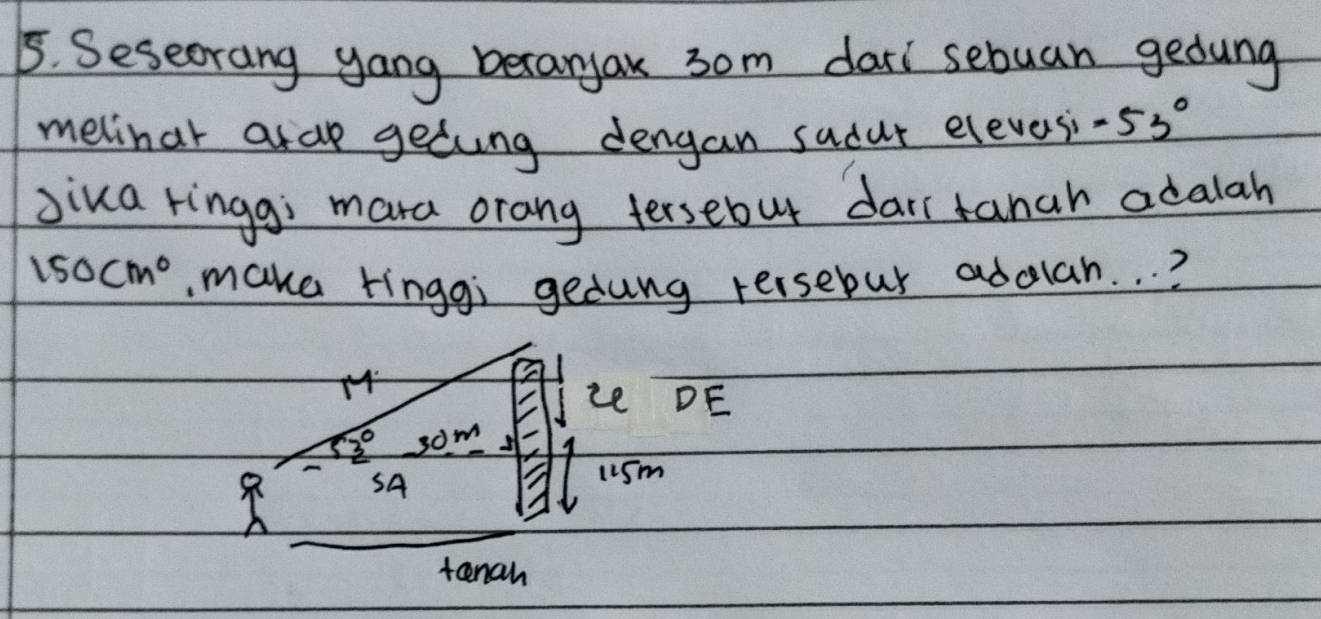 5. Seseorang yang beranjak 30m dari sebuah gedung
melihat atap gedung dengan sudut elevasi = 53°
Jika tinggi mata orang tersebut dari tanah adalah
150cm°, maka tinggi gedung tersebut adalah...?
M
DE
53° 30m
SA
1,5m
tanah